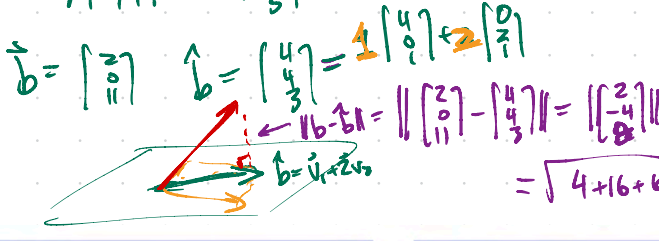 b⃗ = [2 0 11]  b̂ = [4 4 3] = 1 [4 0 1] + 2 [0 2 1]
← ||b - b̂|| = || [2 0 11] - [4 4 3] || = || [2 -4 8] ||
b̂ = v⃗₁ + 2v⃗₂
= √4+16+6